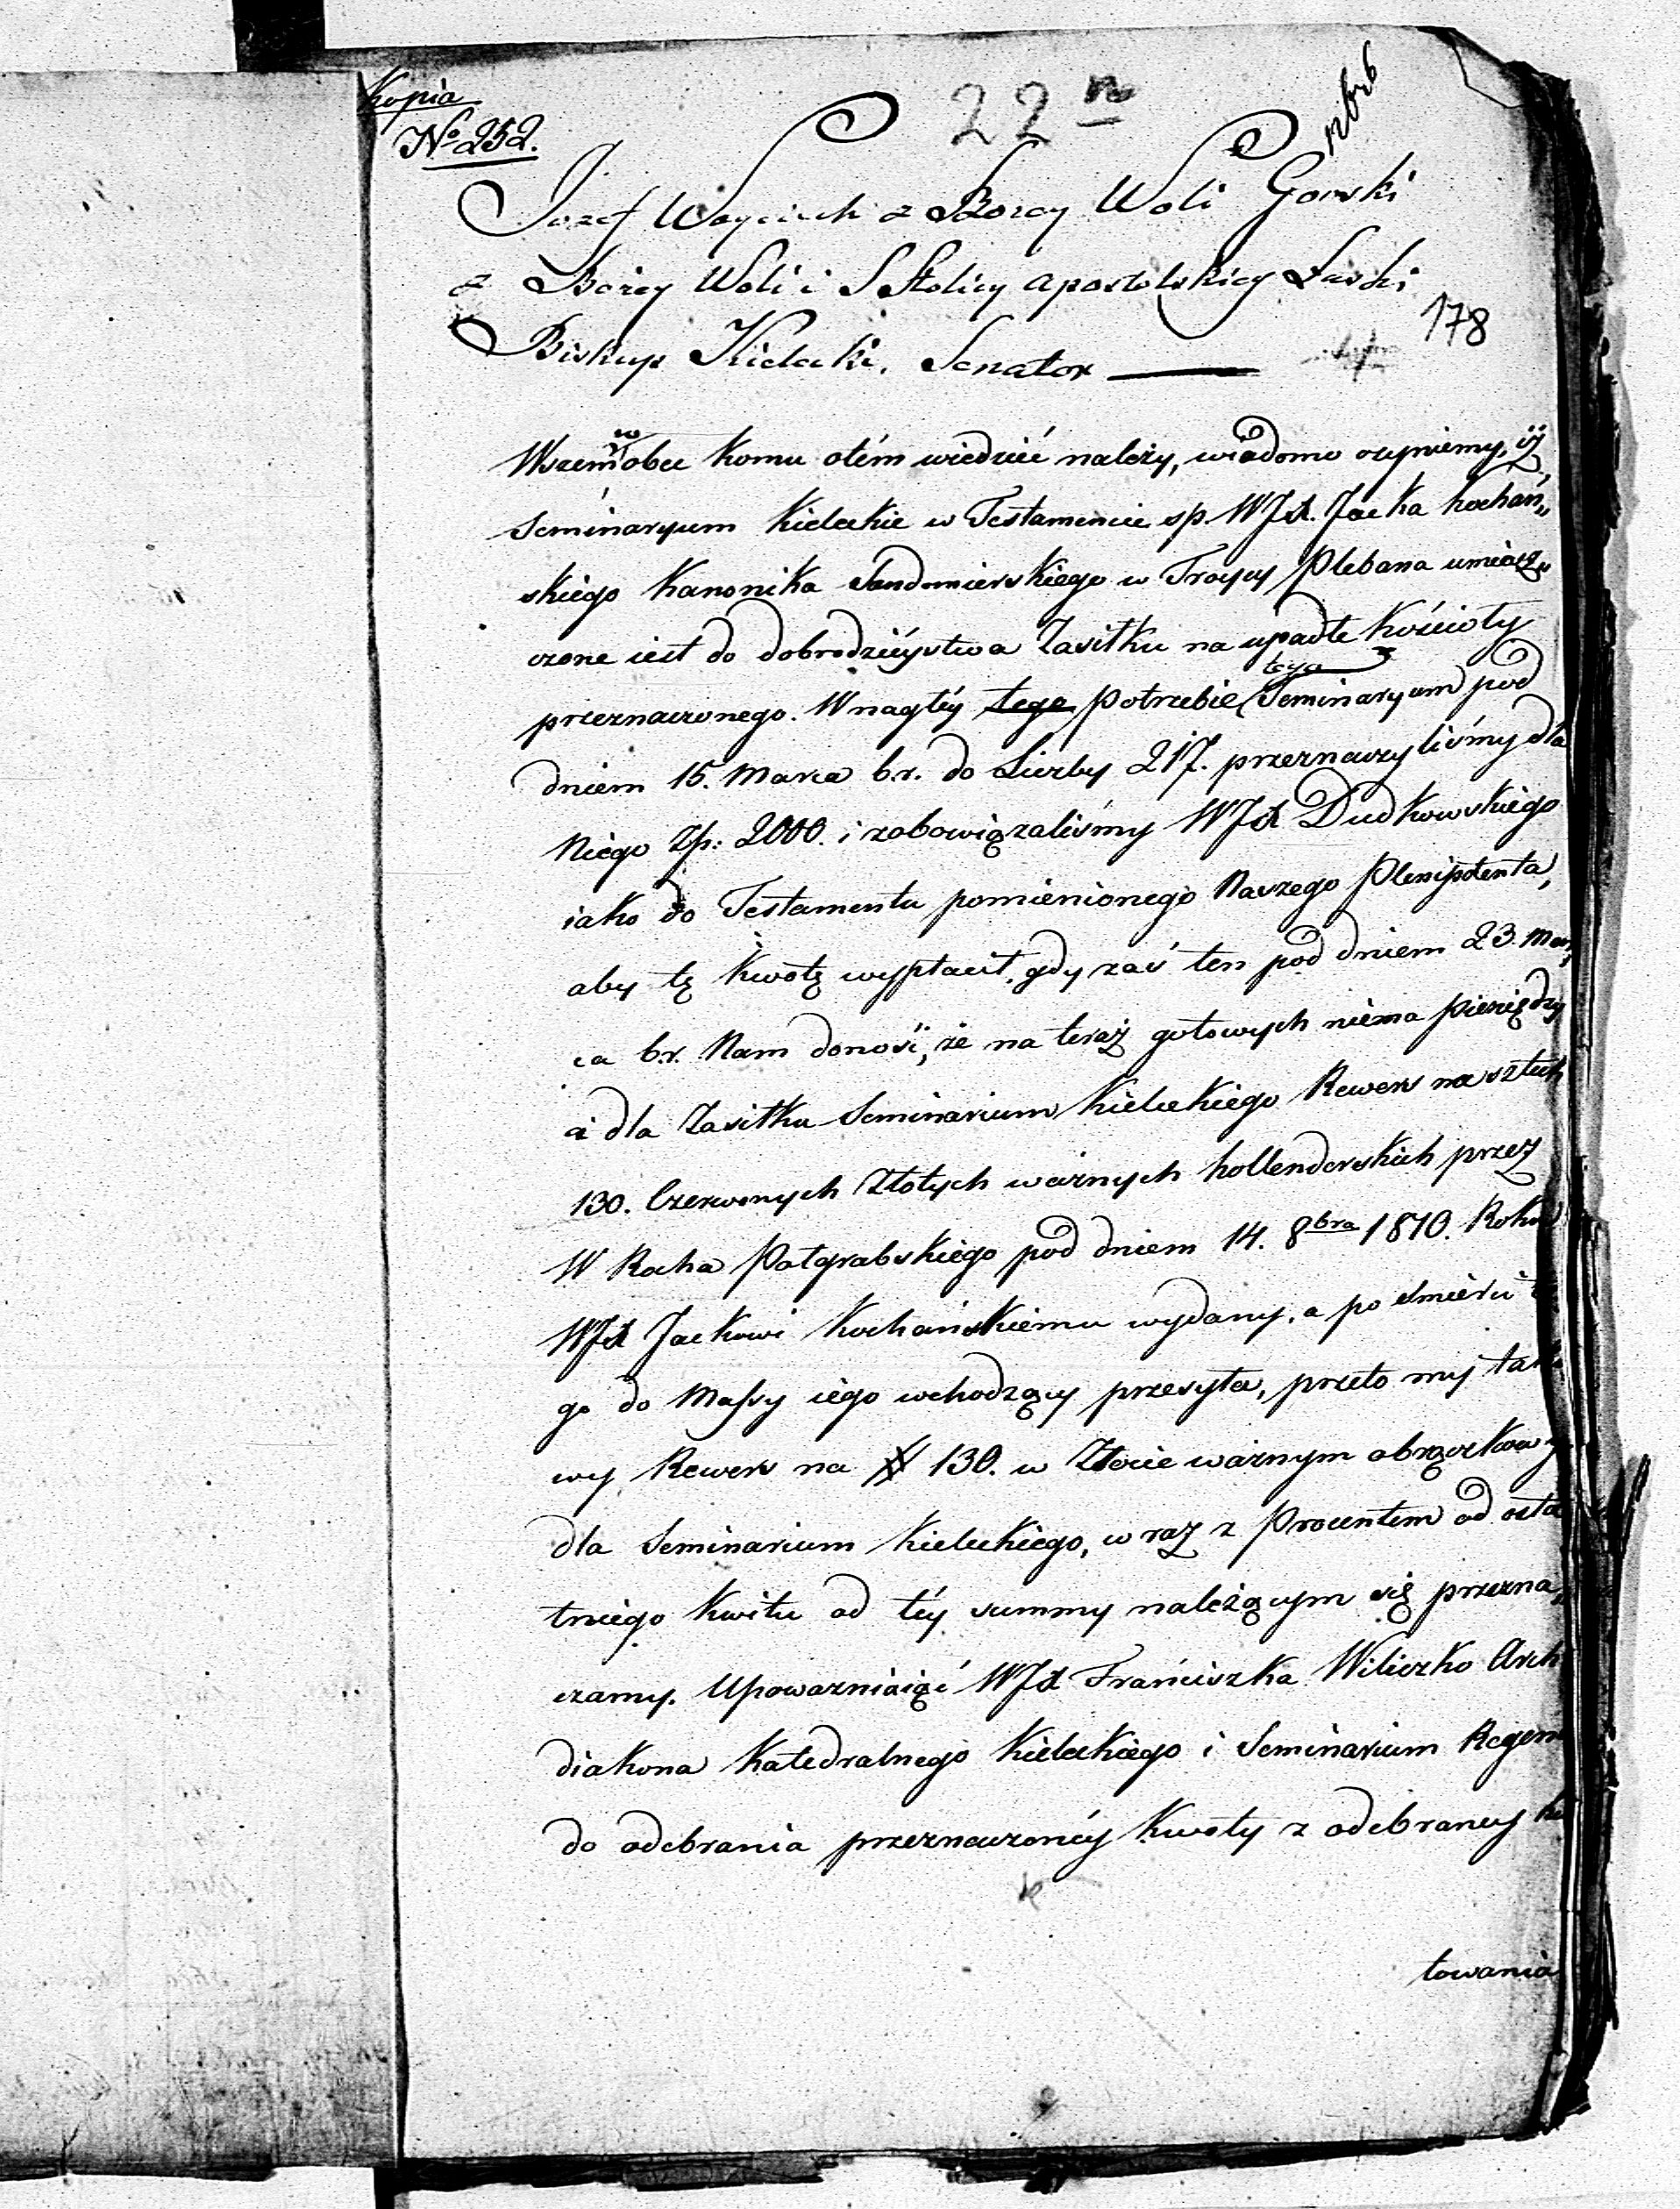 Kopia
No 252.
22
178
Jozef Woyciech z Bozey Woli Gorski
z Bożey Woli i S Stolicy apostolskiey Łaski
Biskup Kielecki, Senator
Wszem w obec komu otém wiedzieć należy, wiadomo czyniemy, iż
Seminaryum Kieleckie w Testamencie sp. WJX. Jacka Kochań„
skiego Kanonika Sandomierskiego w Troycy Plebana umiesz„
czone iest do dobrodzieystwa Zasiłku na upadłe Kościoły
przeznaczonego. W nagłéy tego potrzebie tego Seminaryum pod
dniem 15. Marca b.r. do Liczby 217. przeznaczyliśmy dla
Niego Zp: 2000. i zobowiązaliśmy WJX Dudkowskiego
iako do Testamentu pomienionego Naszego Plenipotenta,
aby tę kwotę wypłacił, gdy zaś ten pod dniem 23. Mar„
ca b.r. Nam donosi, że na teraz gotowych niema pieniędzy
a dla Zasiłku Seminarium Kieleckiego Rewers na sztuk
130. Czerwonych Złotych ważnych hollenderskich przez
W Rocha Pałgrabskiego pod dniem 14. 8bra 1810. Roku
WJX Jackowi Kochańskiemu wydany, a po śmierci te
go do Massy iego wchodzący przesyła, przeto my tako
wy Rewers na # 130. w Złocie ważnym obrączkowy
dla Seminarium Kieleckiego, w raz z Procentem od osta
tniego Kwitu od téy summy należącym się przezna„
czamy. Upoważniaiąć WJX Franciszka Wiliczko Arch
diakona Katedralnego Kieleckiego i Seminarium Regen
do odebrania przeznaczonéy Kwoty z odebraney
towania